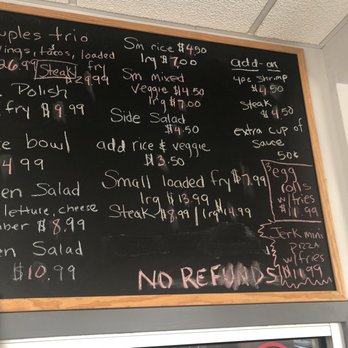 uples trio
ings, tacos, loaded
26.99 Steak fry
$29.99
Polish
fry $9.99
e bowl
4.99
en Salad
letture, cheese
ber $8.99
en Salad
$10.99
Sm rice $4.50
lrg $7.00
Sm mixed
Veggie $4.50
lrg $7.00
Side Salad
$4.50
add rice & veggie
$3.50
Small loaded fry $7.99
lrg $13.99
Steak $8.99 / lrg $14.99
NO REFUNDS
add-on
4pc shrimp
$4.50
Steak
$4.50
extra cup of
sauce
50¢
egg
rolls
w/fries
$11.99
Jerk mini
pizza
w/fries
$11.99